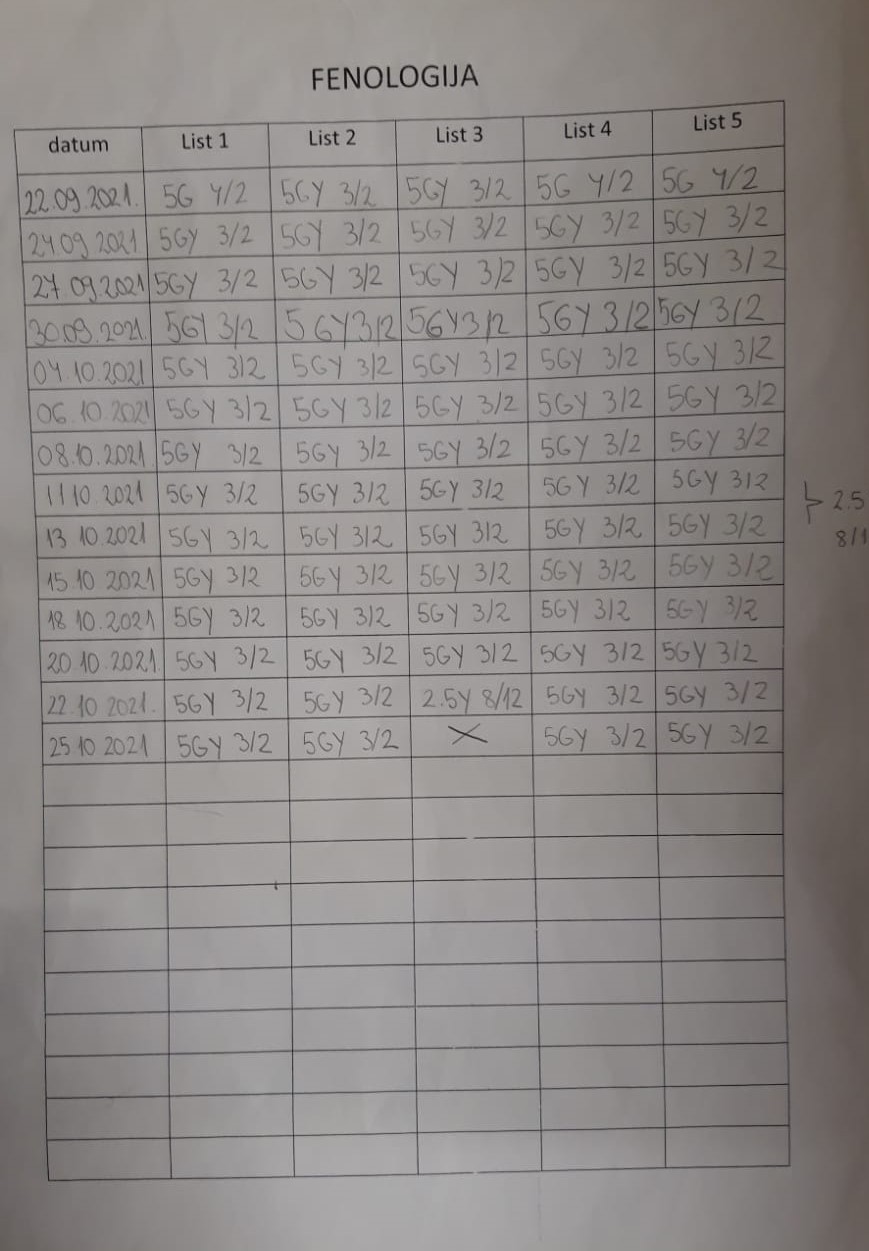 FENOLOGIJA
datum List 1 List 2 List 3 List 4 List 5
22.09.2021. 5G 4/2 5GY 3/2 5GY 3/2 5G 4/2 5G 4/2
24.09 2021 5GY 3/2 5GY 3/2 5GY 3/2 5GY 3/2 5GY 3/2
27.09.2021 5GY 3/2 5GY 3/2 5GY 3/2 5GY 3/2 5GY 3/2
30.09.2021. 5GY 3/2 5GY 3/2 5GY 3/2 5GY 3/2 5GY 3/2
04.10.2021 5GY 3/2 5GY 3/2 5GY 3/2 5GY 3/2 5GY 3/2
06.10.2021 5GY 3/2 5GY 3/2 5GY 3/2 5GY 3/2 5GY 3/2
08.10.2021. 5GY 3/2 5GY 3/2 5GY 3/2 5GY 3/2 5GY 3/2
11 10.2021 5GY 3/2 5GY 3/2 5GY 3/2 5GY 3/2 5GY 3/2
2.5
13 10.2021 5GY 3/2 5GY 3/2 5GY 3/2 5GY 3/2 5GY 3/2
8/1
15.10 2021 5GY 3/2 5GY 3/2 5GY 3/2 5GY 3/2 5GY 3/2
18 10.2021 5GY 3/2 5GY 3/2 5GY 3/2 5GY 3/2 5GY 3/2
20.10.2021. 5GY 3/2 5GY 3/2 5GY 3/2 5GY 3/2 5GY 3/2
22.10 2021. 5GY 3/2 5GY 3/2 2.5Y 8/12 5GY 3/2 5GY 3/2
25 10 2021 5GY 3/2 5GY 3/2 X 5GY 3/2 5GY 3/2